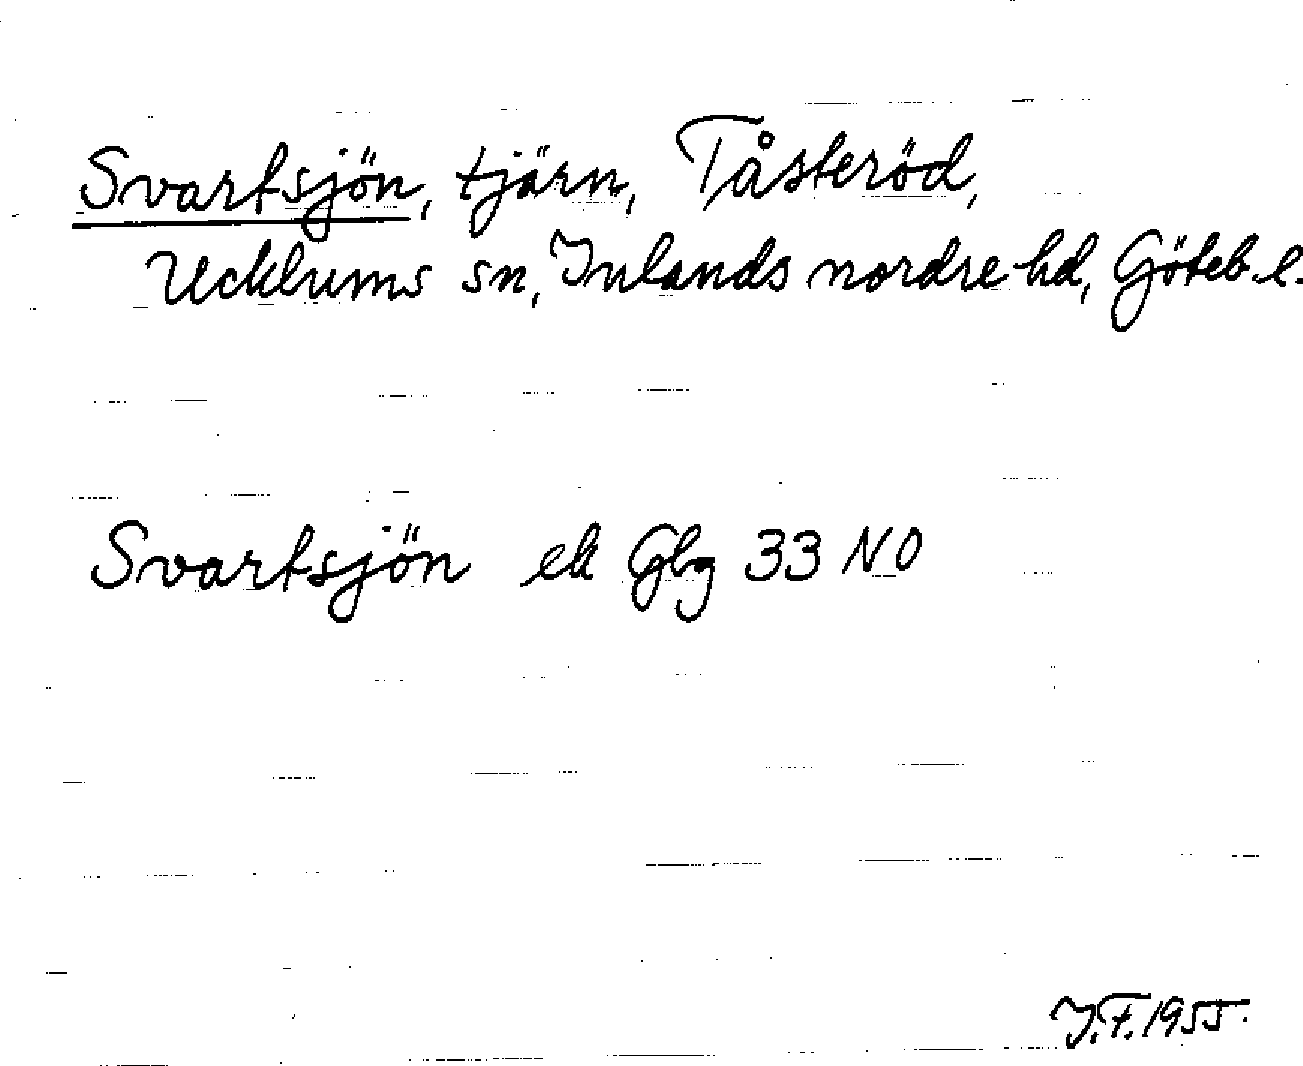 Svartsjön, tjärn, Tåsteröd,
Ucklums sn, Inlands nordre hd, Göteb. l.
Svartsjön ek Gbg 33 NO
J.F. 1955.